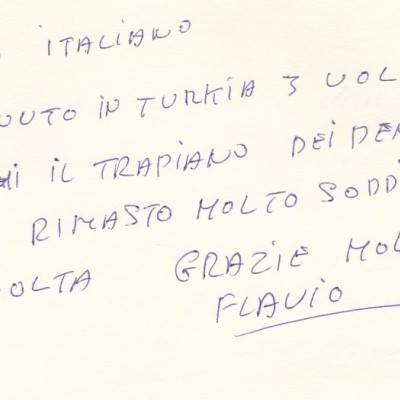 ITALIANO
NUTO IN TURKIA 3 VOL
IL TRAPIANO DEI DEN
RIMASTO MOLTO SODDI
OLTA GRAZIE MOL
FLAVIO